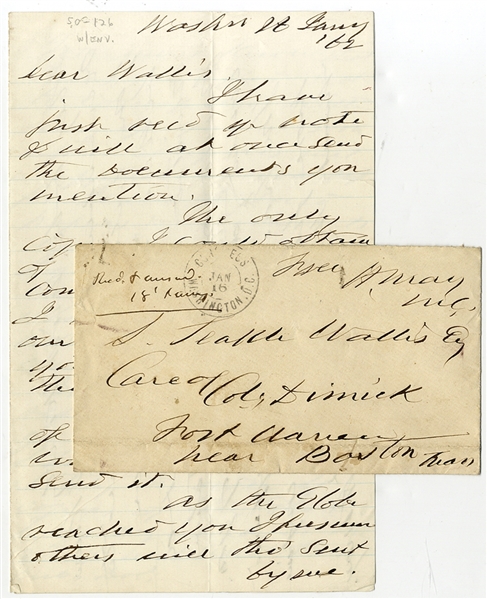 SOC 126
W/ENV.
Washn Jany
'62
Dear Wallis,
I have
just recd yr note
& will at once send
the documents you
mention.
The only
copy I could obtain
of
I
our
you
the
of
send it.
as the Globe
reached you I presume
others will tho sent
by me.
Free H. May
M.C.
Recd & ansd
18' Jany.
JAN
16
WASHINGTON, D.C.
S. Teakle Wallis Esq
Care of Col. Dimick
Fort Warren
near Boston Mass